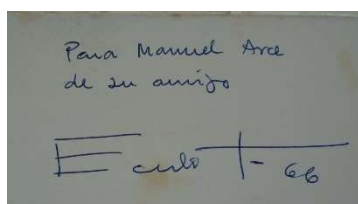 Para Manuel Arce
de su amigo
66